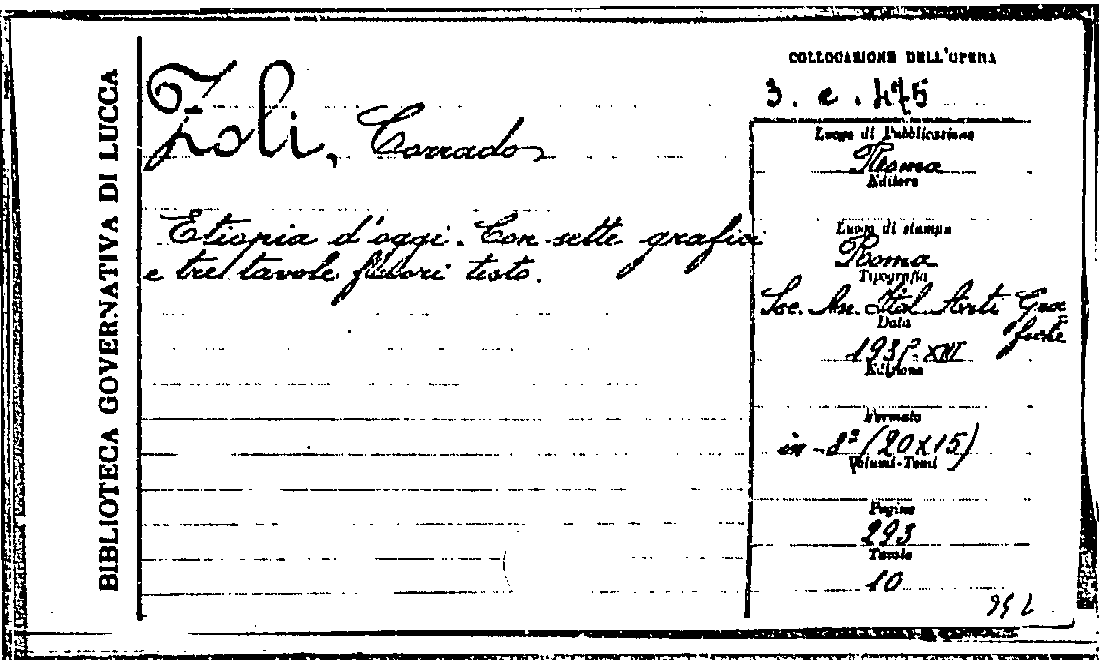 BIBLIOTECA GOVERNATIVA DI LUCCA
Zoli, Corrado
Etiopia d'oggi. Con sette grafici
e tre tavole fuori testo.
COLLOCAZIONE DELL'OPERA
3. e. 475
Luogo di Pubblicazione
Roma
Editore
Luogo di stampa
Roma
Tipografia
Soc. An. Ital. Arti Gra
fiche
Data
Edizione
Formato
in-8º (20x15)
Volumi-Tomi
Pagine
293
Tavole
10